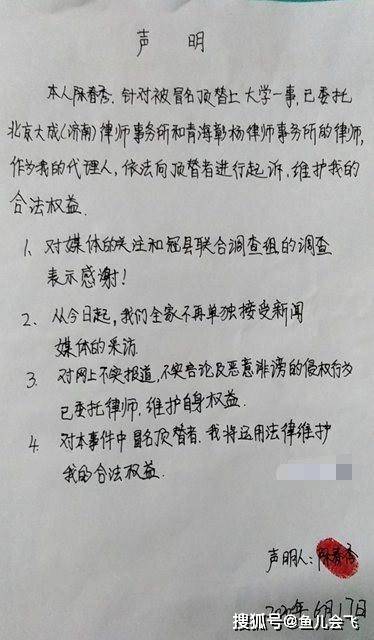 声 明
本人陈春秀，针对被冒名顶替上大学一事，已委托
北京大成（济南）律师事务所和青海彰杨律师事务所的律师，
作为我的代理人，依法向顶替者进行起诉，维护我的
合法权益.
1、对媒体的关注和冠县联合调查组的调查
表示感谢！
2、从今日起，我们全家不再单独接受新闻
媒体的采访.
3、对网上不实报道，不实言论及恶意诽谤的侵权行为
已委托律师，维护自身权益.
4、对本事件中冒名顶替者，我将运用法律维护
我的合法权益.
声明人：陈春秀
2020年6月17日
搜狐号@鱼儿会飞